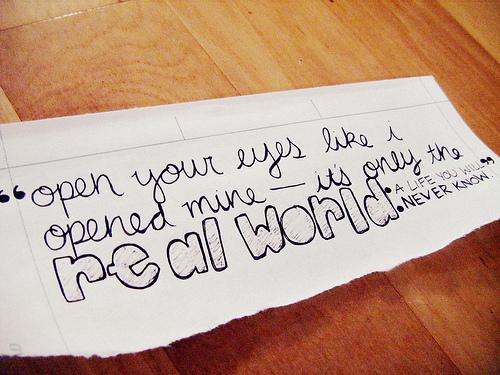 “open your eyes like i
opened mine — it's only the
real world: A LIFE YOU WILL
NEVER KNOW.”